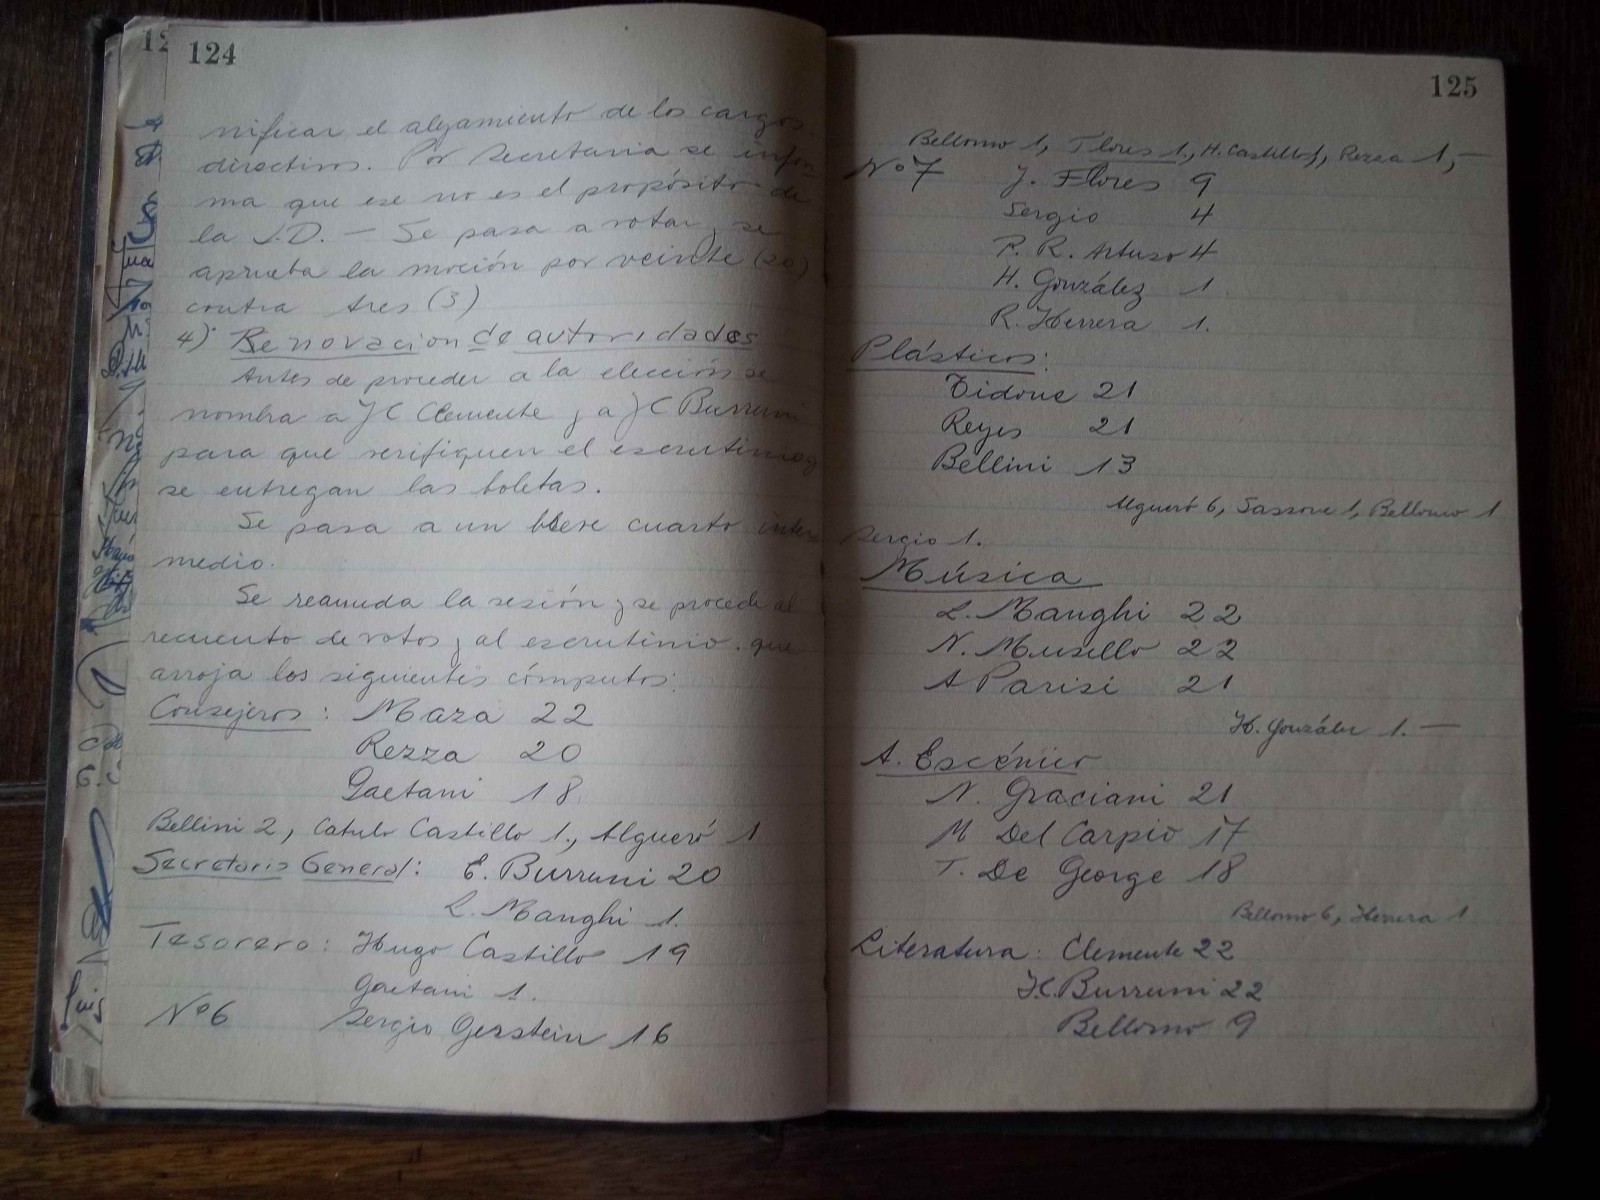 124
nificar el alejamiento de los cargos
directivos. Por Secretaria se infor
ma que ese no es el propósito de
la J.D. — Se pasa a votar y se
aprueba la moción por veinte (20)
contra tres (3)
4) Renovacion de autoridades
Antes de proceder a la elección se
nombra a JC Clemente y a JC Burruni
para que verifiquen el escrutinio y
se entregan las boletas.
Se pasa a un breve cuarto inter
medio.
Se reanuda la sesión y se procede al
recuento de votos y al escrutinio que
arroja los siguientes cómputos:
Consejeros: Maza 22
Rezza 20
Gaetani 18
Bellini 2, Catulo Castillo 1., Algueró 1
Secretario General: E. Burruni 20
L. Manghi 1.
Tesorero: Hugo Castillo 19
Gaetani 1.
Nº6 Sergio Gerstein 16
125
Bellomo 1, Flores 1., H. Castillo 1, Rezza 1, —
Nº7 J. Flores 9
Sergio 4
P. R. Artuso 4
H. González 1
R. Herrera 1.
Plásticos:
Tidone 21
Reyes 21
Bellini 13
Algueró 6, Sassone 1, Bellomo 1
Sergio 1.
Música
L. Manghi 22
N. Musello 22
A Parisi 21
H. González 1. —
A. Escénico
N. Graciani 21
M Del Carpio 17
T. De George 18
Bellomo 6, Herrera 1
Literatura: Clemente 22
J.C. Burruni 22
Bellomo 9